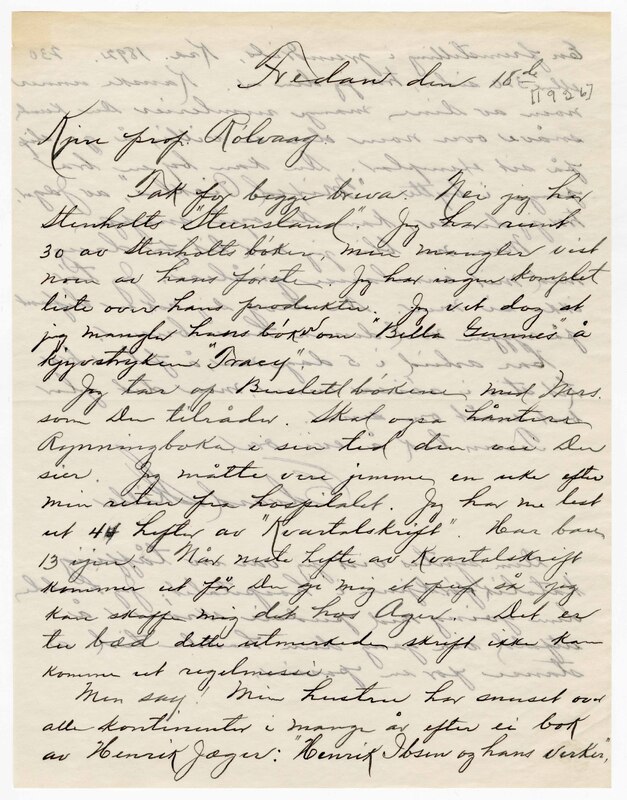 Fredan den 15de
[1926]
Kjre prof. Rølvaag
Tak for begge breva. Nei jeg har
Stenholts "Steensland". Jeg har runt
30 av Stenholts bøker, men mangler vist
noen av hans første. Jeg har ingen komplet
liste over hans produkter. Jeg vet dog at
jeg mangler hans bøker om "Bella Gunnes" å
kjyvstryken "Tracy".
Jeg tar op Buslett bøkene med Mrs.
som De tilråder. Skal ogsa håntere
Rynningboka i sin tid den vei De
sier. Jeg måtte vere jemme en uke efter
min retur fra hospitalet. Jeg har nu lest
ut 44 hefter av "Kvartalskrift". Har bare
13 ijen. Når neste hefte av Kvartalskrift
kommer ut får De gi mig et pip så jeg
kan skaffe mig det hos Ager. Det er
te bæd dette utmerkede skrift ikke kan
komme ut regelmessi.
Men say! Min hustru har snuset over
alle kontinenter i mange år efter ei bok
av Henrik Jæger: "Henrik Ibsen og hans verker",